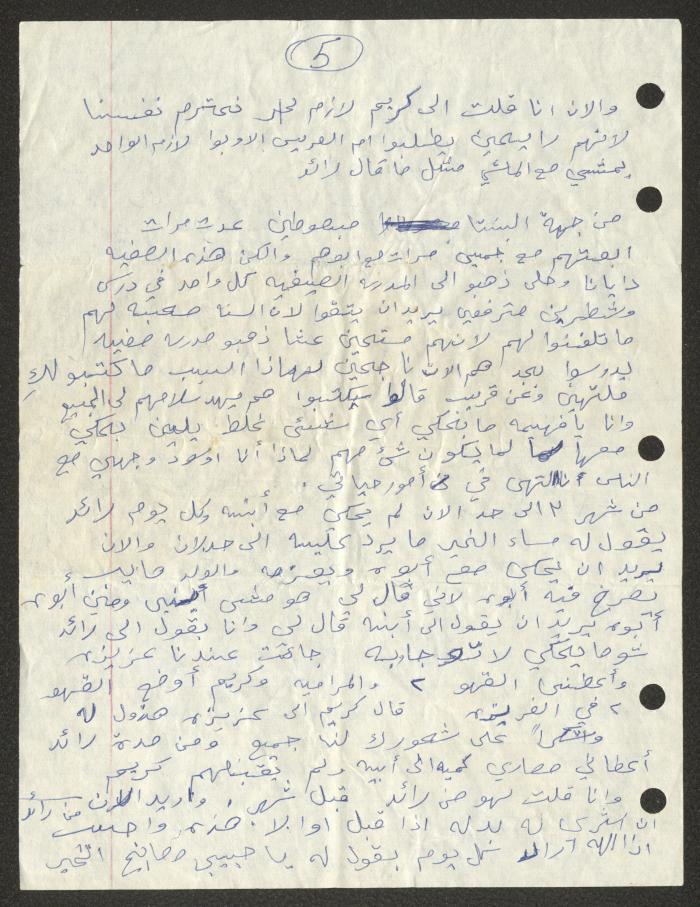 5
والان انا قلت الى كريم لازم نحترم نفسنا
لانهم رايحين يطلبوا ام العريس الاوبوا لازم الواحد
يمشي مع الماشي مثل ما قال رائد
من جهة البنتا مبصوطين عدت مرات
ابعتهم مع جمين مرات مع ابوهم والكن هذه الصفيه
دايانا وحلى ذهبو الى المدرسه الصيفيه كل واحد في درس
وشطرين مترفعين يريدان يتقوا لان السنا صعبه لهم
ما تلفنوا لهم لانهم مستحين عشا ذهبو مدرسه صفيه
ليدرسوا بجد هم الان ناجحين لهاذا السبب ما كتبو لك
ملتهين وعن قريب قالوا سيكتبوا هم يهد سلامهم لى الجميع
وانا يا فهيمه ما بنحكي أي شيئ غلط يلعين بحكي
معها لما يكون شئ مهم لماذا أنا اوسود وجهي مع
الناس انا التهي في أمور حياتي .
من شهر ٢ الى حد الان لم يحكي مع أبنه وكل يوم رائد
يقول له مساء الخير ما يرد عليه الى حد الان والان
يريد ان يحكي مع أبوه ويعزمه والولد ما
يصرخ فيه أبوه لاني قال لي هو مش أبني ومني أبوه
أبوه يريد ان يقول الى أبنه قال لي وانا بقول الى رائد
شو ما يحكي لا تجاربه جائت عندنا عزيزه
وأعطتني القهو ٢ والمراميه وكريم أوضع القهو
٢ في الفريزه قال كريم الى عزيزه هدول له
وشكراً على شعورك لنا جميع ومن مدة رائد
أعطالي مصاري كميه الى أبيه ولم يقبلهم كريم
وانا قلت لهو من رائد قبل شهر ، واريد الان من رائد
ان اشتري له بدله اذا قبل اوا لا هذه واجبت
اذا الله اراد كل يوم بقول له يا حبيبي صابح الخير